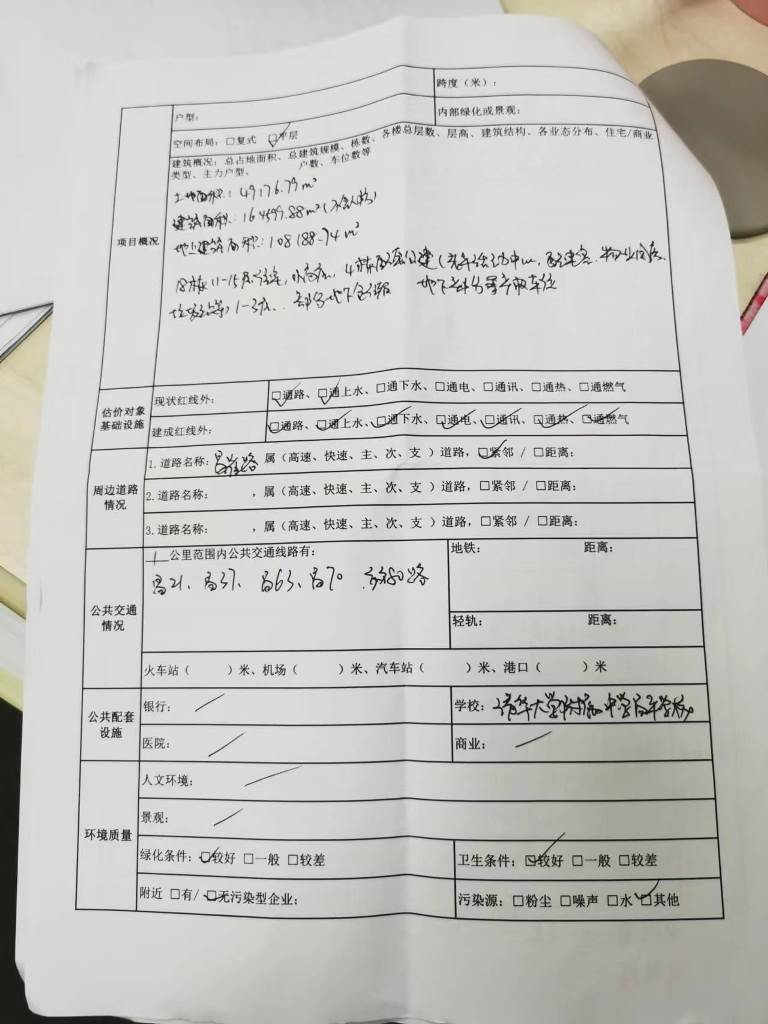 户型:
跨度（米）:
空间布局: □复式 ☑平层
内部绿化或景观:
建筑概况: 总占地面积、总建筑规模、栋数、各楼总层数、层高、建筑结构、各业态分布、住宅/商业
类型、主力户型、 户数、车位数等
项目概况
土地面积: 49176.79m²
建筑面积: 164599.88m²(不含人防)
地上建筑面积: 108188.94m²
18栋11-15层住宅, 小高层, 4栋配套公建(
1-3层. 地下车位
估价对象
基础设施
现状红线外: ☑通路、☑通上水、□通下水、□通电、□通讯、□通热、□通燃气
建成红线外: ☑通路、☑通上水、☑通下水、☑通电、☑通讯、☑通热、☑通燃气
周边道路
情况
1.道路名称: 路, 属（高速、快速、主、次、支 ）道路, ☑紧邻 / □距离:
2.道路名称: , 属（高速、快速、主、次、支 ）道路, □紧邻 / □距离:
3.道路名称: , 属（高速、快速、主、次、支 ）道路, □紧邻 / □距离:
公共交通
情况
1 公里范围内公共交通线路有:
昌21、昌37、昌63、昌70 路
地铁: 距离:
轻轨: 距离:
火车站（ ）米、机场（ ）米、汽车站（ ）米、港口（ ）米
公共配套
设施
银行:
学校: 清华大学附属中学昌平学校
医院:
商业:
环境质量
人文环境:
景观:
绿化条件: ☑较好 □一般 □较差
卫生条件: ☑较好 □一般 □较差
附近 □有/ ☑无污染型企业:
污染源: □粉尘 □噪声 □水 ☑其他